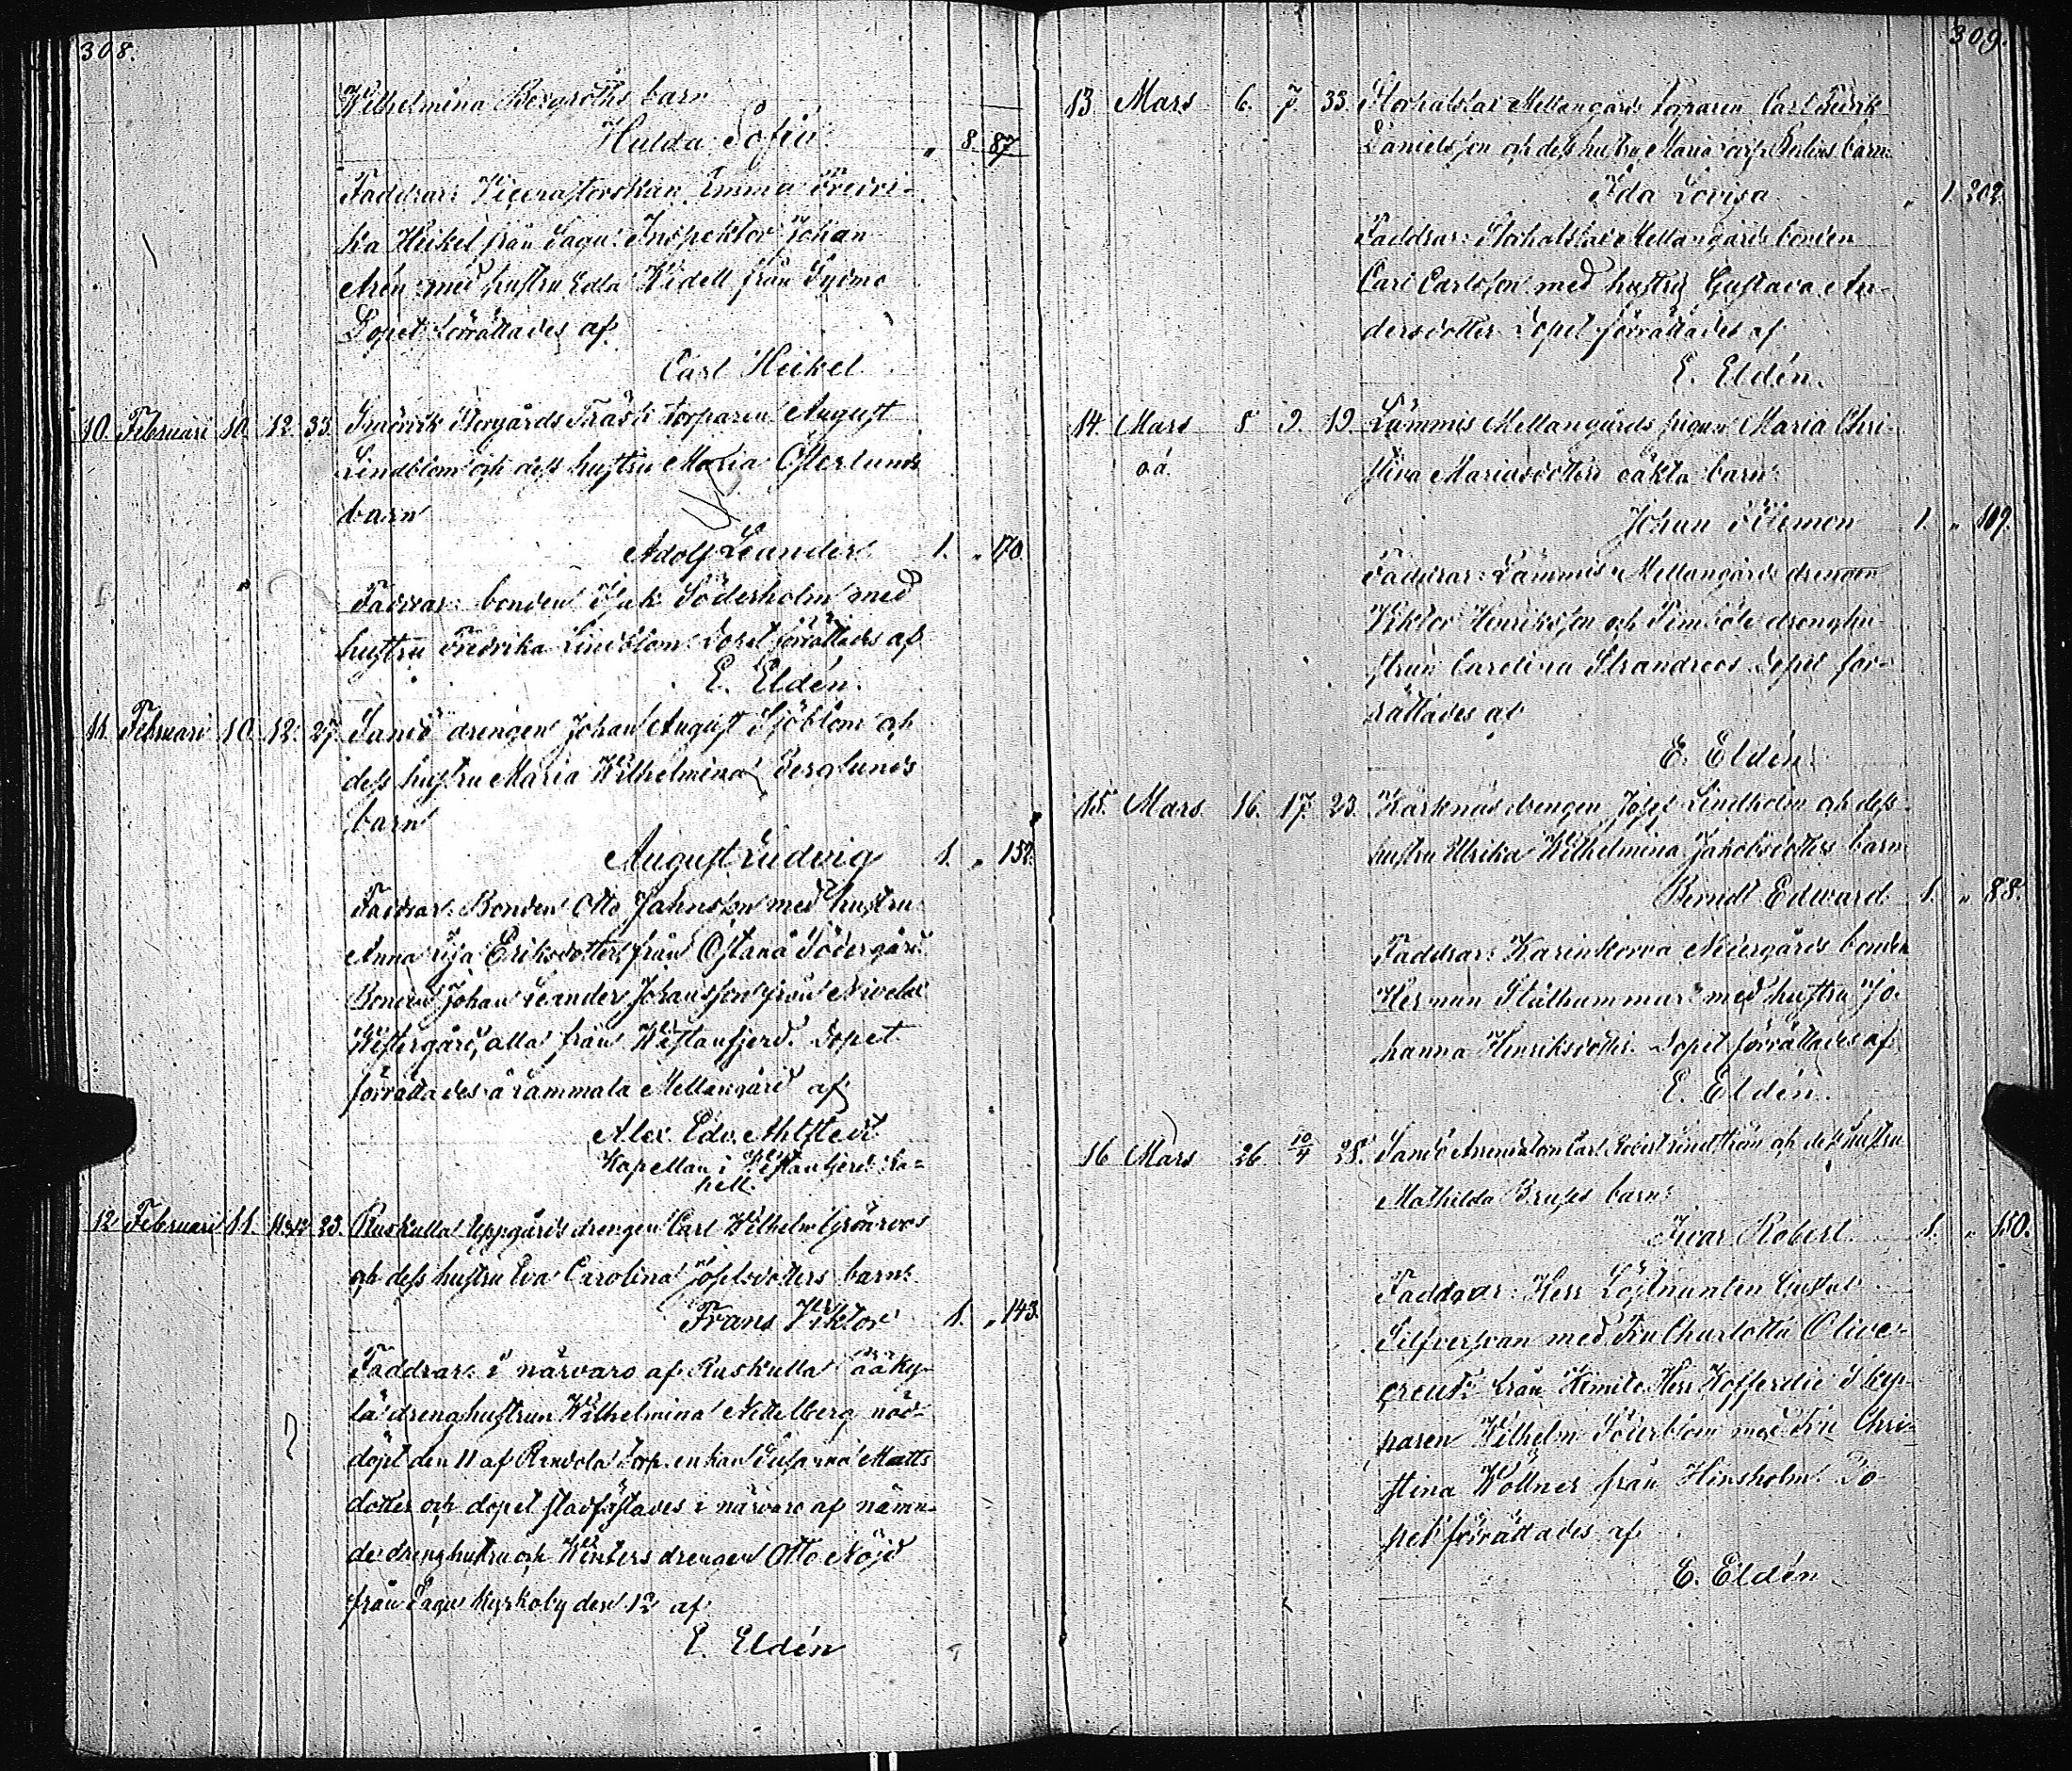 308.
Wilhelmina Bergroths barn
Hulda Sofia „ 8. 87
Faddrar: Vicepastorskan Emma Fredri-
ka Heikel från Sagu. Inspektor Johan
Arén med hustru Edla Widell från Sydmo
Dopet förrättades af
Carl Heikel
10. Februari 10. 12. 33. Storgårds Träsk torparen August
Lindblom och dess hustru Maria Österlunds
barn
Adolf Leander 1. „ 170.
Faddrar: bonden Isak Söderholm med
hustru Fredrika Lindblom. Dopet förrättades af
E. Eldén.
11. Februari 10. 12. 27. Sandö drengen Johan August Sjöblom och
dess hustru Maria Wilhelmina Berglunds
barn
August Ludvig 1. „ 152.
Faddrar: Bonden Otto Johansson med hustru
Anna Lisa Eriksdotter från Östanå Södergård
Bonden Johan Leander Johansson från Nivelax
Westergård, alla från Westanfjerd. Dopet
förrättades å Lammala Mellangård af
Alex. Edv. Ahlstedt
Kapellan i Westanfjerd Ka-
pell.
12 Februari 11. 11 & 12 23. Ruskulla Uppgårds drengen Carl Wilhelm Grönroos
och dess hustru Eva Carolina Josefsdotters barn:
Frans Viktor 1. „ 143.
Faddrar: i närvaro af Ruskulla Ääky-
lä drenghustrun Wilhelmina Nettelberg nöd-
döpt den 11 af Rendola Torp.enkan Susanna Matts
dotter och dopet stadfästades i närvaro af nämn-
de drenghustru och Winters drengen Otto Nöjd
från Sagu Kyrkoby den 12 af
E. Eldén
309.
13. Mars 6. 7. 33. Storhalslax Mellangårds Torparen Carl Fedrik
Danielsson och dess hustru Maria barn:
Ida Lovisa „ 1. 202.
Faddrar: Storhalslax Mellangårds bonden
Carl Carlsson med hustru Gustava An-
dersdotter. Dopet förrättades af
E. Eldén.
14. Mars 8 9. 19. Lämmis Mellangårds pigan Maria Chri-
oä. stina Mariasdotters oäkta barn:
Johan Filemon 1. „ 109.
Faddrar: Lämmis Mellangårds drengen
Viktor Henriksson och Pemböle drenghu-
strun Carolina Strandroos. Dopet för-
rättades af
E. Eldén.
15. Mars 16. 17. 23. Kärknäs drengen Josef Lindholm och dess
hustru Ulrika Wilhelmina Jakobsdotters barn
Berndt Edward. 1. „ 88.
Faddrar: Karinkorva Nedergårds bonden
Herman Stålhammar med hustru Jo-
hanna Henriksdotter. Dopet förrättades af
E. Eldén.
16 Mars 26 10/4 28. Sandö Arrendatorn Carl Robert Lindström och dess hustru
Mathilda Brusis barn:
Ivar Robert. 1. „ 150.
Faddrar: Herr Löjtnanten Gustaf
Silfversvan med Fru Charlotta Olive-
creutz från Kimito. Herr Kofferdie Skep-
paren Wilhelm Söderblom med Fru Chri-
stina Wöllner från Hinsholm. Do-
pet förrättades af
E. Eldén